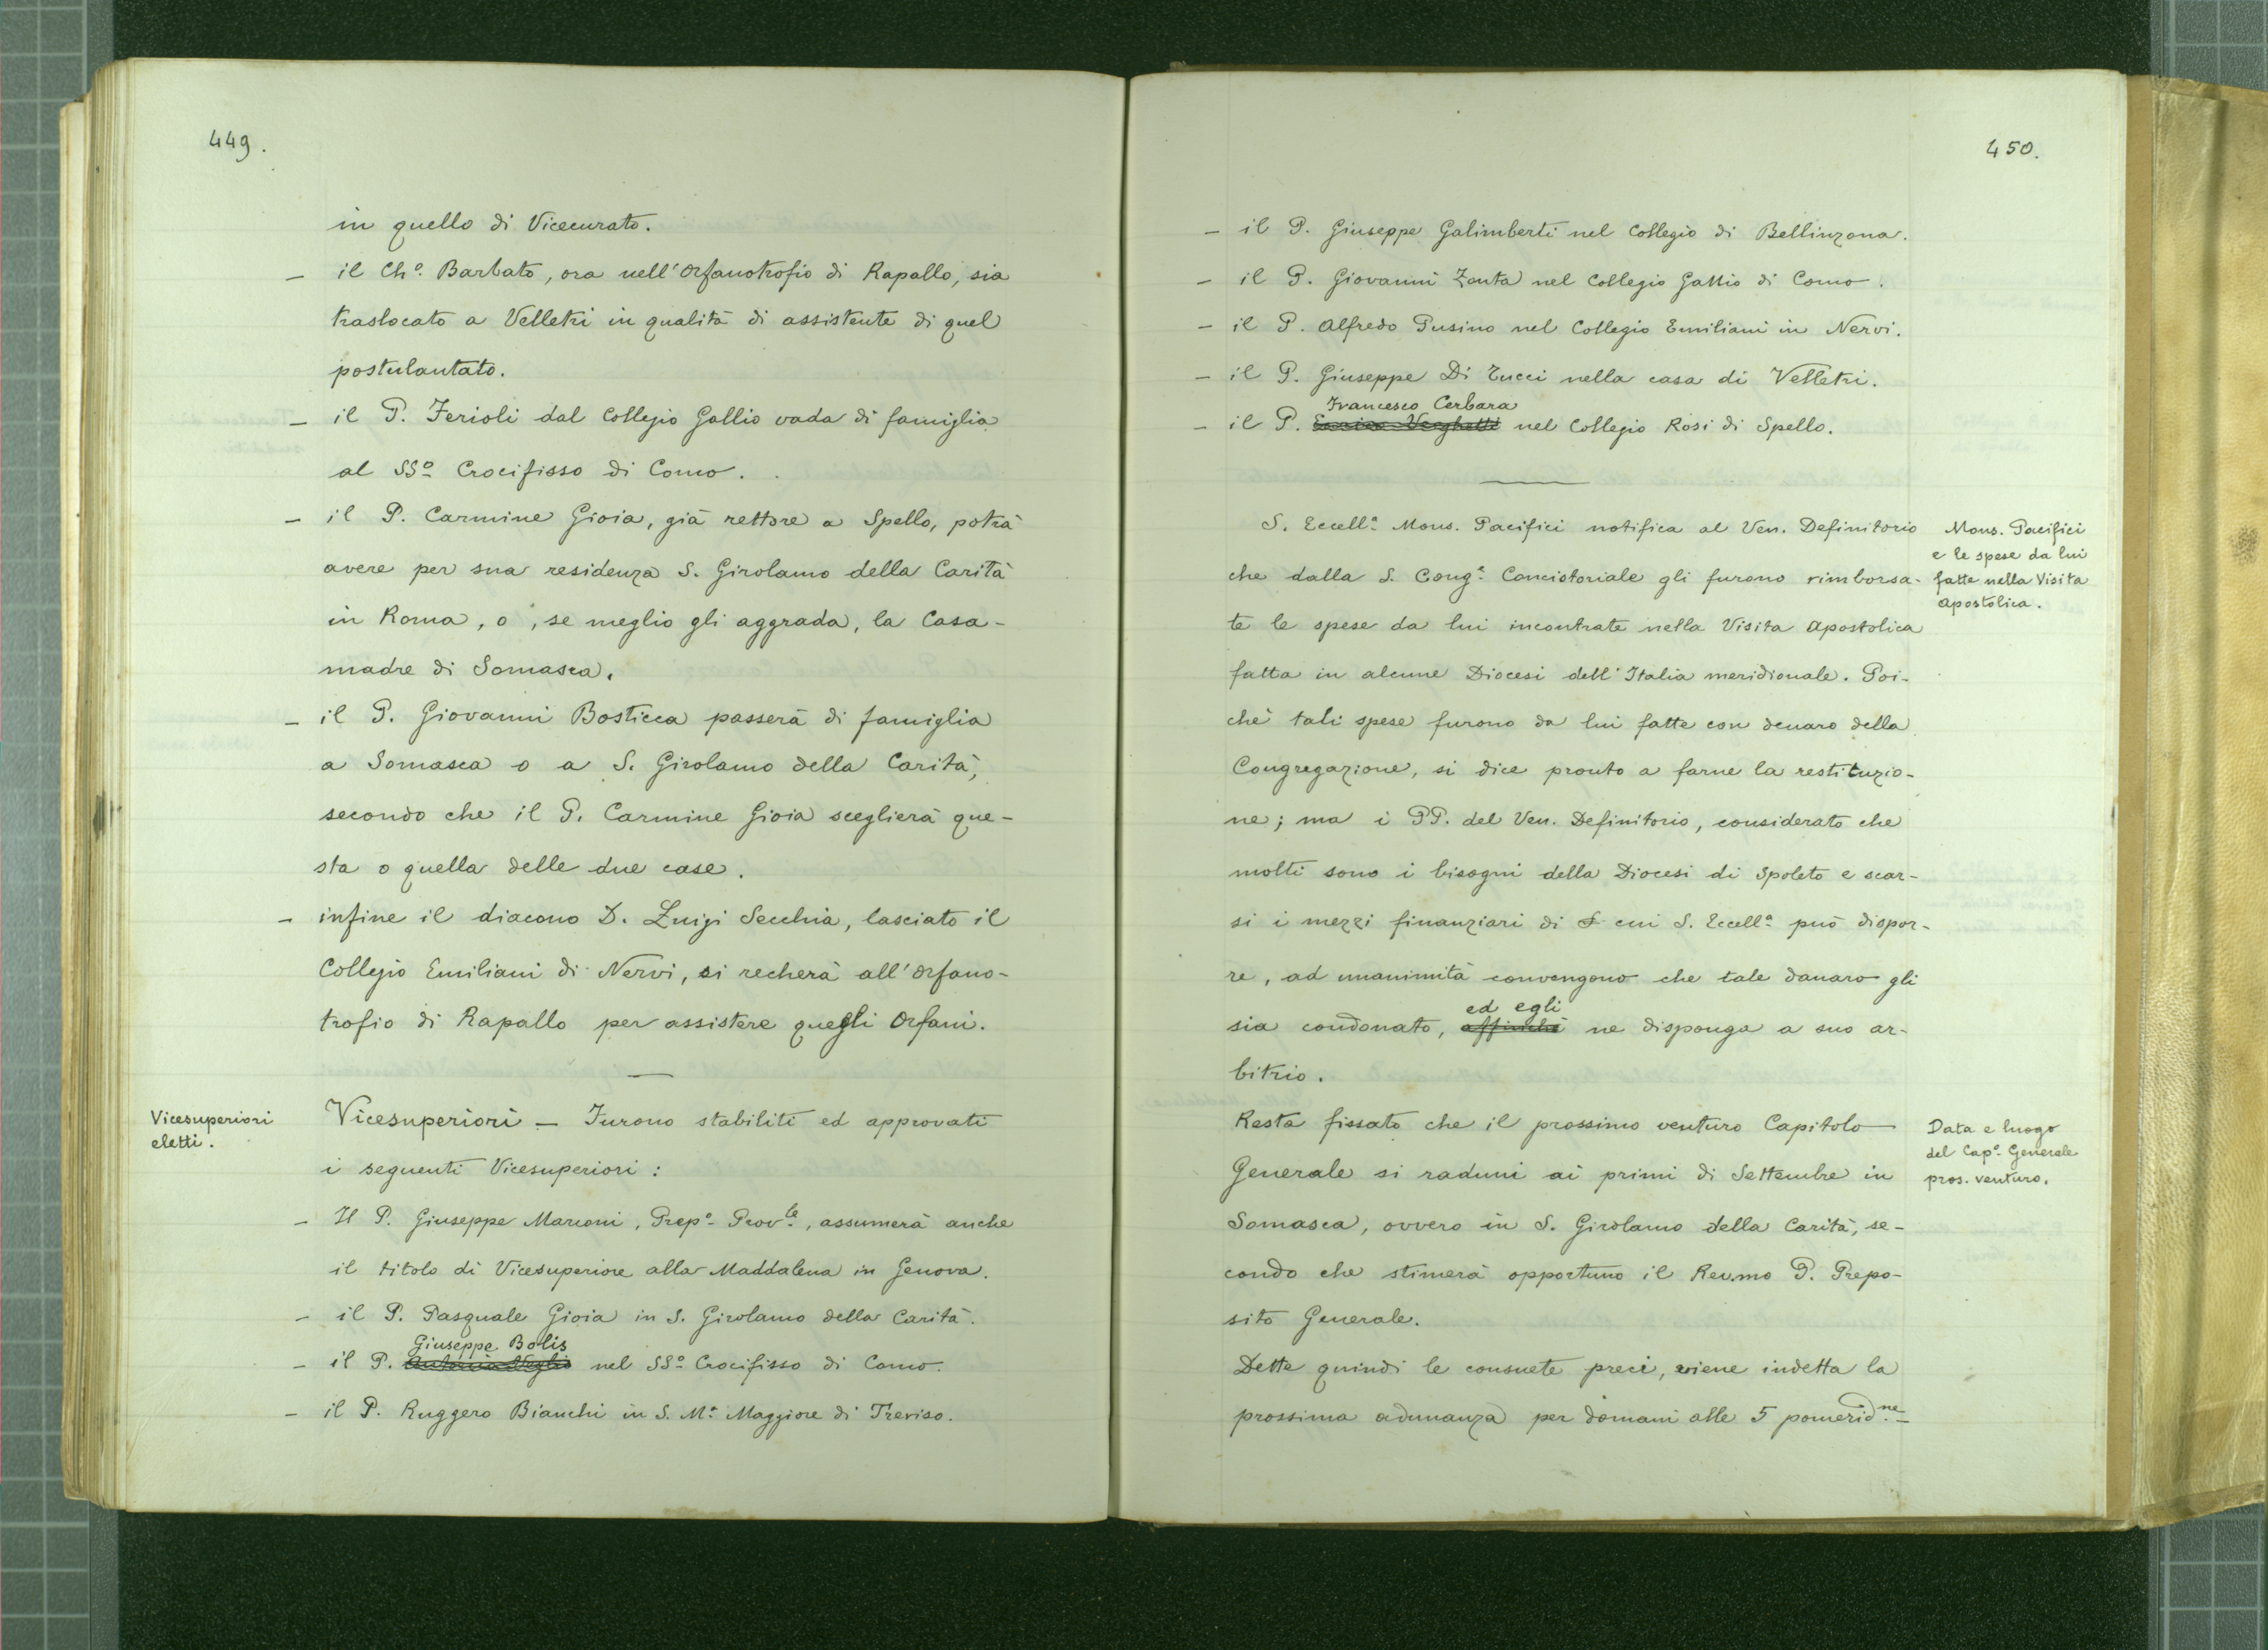 449.
in quello di Vicecurato.
– il Ch.º Barbato, ora nell'Orfanotrofio di Rapallo, sia
traslocato a Velletri in qualità di assistente di quel
postulantato.
– il P. Ferioli dal Collegio Gallio vada di famiglia
al SSº Crocifisso di Como.
– il P. Carmine Gioia, già rettore a Spello, potrà
avere per sua residenza S. Girolamo della Carità
in Roma, o, se meglio gli aggrada, la Casa-
madre di Somasca.
– il P. Giovanni Bosticca passerà di famiglia
a Somasca o a S. Girolamo della Carità,
secondo che il P. Carmine Gioia sceglierà que-
sta o quella delle due case.
– infine il diacono D. Luigi Secchia, lasciato il
Collegio Emiliani di Nervi, si recherà all'Orfano-
trofio di Rapallo per assistere quegli Orfani.
Vicesuperiori
eletti.
Vicesuperiori – Furono stabiliti ed approvati
i seguenti Vicesuperiori:
– Il P. Giuseppe Marconi, Prep.º Prov.le, assumerà anche
il titolo di Vicesuperiore alla Maddalena in Genova.
– il P. Pasquale Gioia in S. Girolamo della Carità.
Giuseppe Bolis
– il P. nel SSº Crocifisso di Como.
– il P. Ruggero Bianchi in S. M.ª Maggiore di Treviso.
450.
– il P. Giuseppe Galimberti nel Collegio di Bellinzona.
– il P. Giovanni Zonta nel Collegio Gallio di Como.
– il P. Alfredo Pusino nel Collegio Emiliani in Nervi.
– il P. Giuseppe Di Tucci nella casa di Velletri.
Francesco Cerbara
– il P. nel Collegio Rosi di Spello.
S. Eccell.ª Mons. Pacifici notifica al Ven. Definitorio
che dalla S. Cong.e Concistoriale gli furono rimborsa-
te le spese da lui incontrate nella Visita Apostolica
fatta in alcune Diocesi dell'Italia meridionale. Poi-
chè tali spese furono da lui fatte con denaro della
Congregazione, si dice pronto a farne la restituzio-
ne; ma i PP. del Ven. Definitorio, considerato che
molti sono i bisogni della Diocesi di Spoleto e scar-
si i mezzi finanziari di cui S. Eccell.ª può dispor-
re, ad unanimità convengono che tale danaro gli
ed egli
sia condonato, affinchè ne disponga a suo ar-
bitrio.
Mons. Pacifici
e le spese da lui
fatte nella Visita
Apostolica.
Resta fissato che il prossimo venturo Capitolo
Generale si raduni ai primi di Settembre in
Somasca, ovvero in S. Girolamo della Carità, se-
condo che stimerà opportuno il Rev.mo P. Prepo-
sito Generale.
Data e luogo
del Cap.º Generale
pros. venturo.
Dette quindi le consuete preci, viene indetta la
prossima adunanza per domani alle 5 pomerid.ne